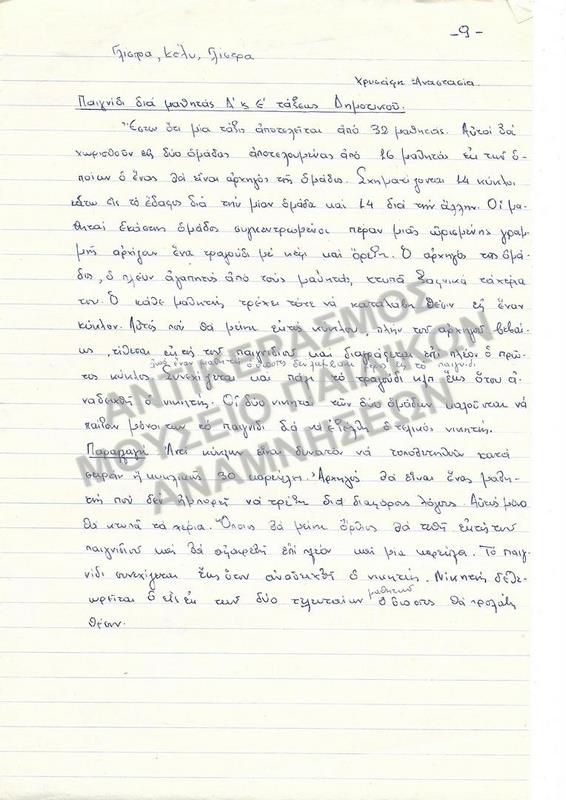 -9-
Γλίστρα, κέλυ, γλίστρα
Χρυσάφη Αναστασία.
Παιγνίδι διά μαθητάς Δ' & Ε' τάξεως Δημοτικοῦ.
Ἔστω ὅτι μία τάξις ἀποτελεῖται ἀπό 32 μαθητάς. Αὐτοί θά
χωρισθοῦν εἰς δύο ὁμάδας ἀποτελουμένας ἀπό 16 μαθητάς ἐκ τῶν ὁ-
ποίων ὁ ἕνας θά εἶναι ἀρχηγός τῆς ὁμάδος. Σχηματίζονται 14 κύκλοι
κάτω εἰς τό ἔδαφος διά τήν μίαν ὁμάδα καί 14 διά τήν ἄλλην. Οἱ μα-
θηταί ἑκάστης ὁμάδος συγκεντρωμένοι πέραν μιᾶς ὡρισμένης γραμ-
μῆς ἀρχίζουν ἕνα τραγούδι μέ κέφι καί ὄρεξη. Ὁ ἀρχηγός τῆς ὁμά-
δος, ὁ πλέον ἀγαπητός ἀπό τούς μαθητάς, κτυπᾶ ξαφνικά τά χέρια
του. Ὁ κάθε μαθητής τρέχει τότε νά καταλάβη θέσιν εἰς ἕναν
κύκλον. Αὐτός πού θά μείνη ἐκτός κύκλου, πλήν τοῦ ἀρχηγοῦ βεβαί-
ως, τίθεται ἐκτός τοῦ παιγνιδιοῦ καί διαγράφεται ἐπί πλέον ὁ πρῶ-
τος κύκλος. Συνεχίζεται καί πάλι τό τραγούδι κλπ ἕως ὅτου ἀ-
ναδειχθῆ ὁ νικητής. Οἱ δύο νικηταί τῶν δύο ὁμάδων καλοῦνται νά
παίξουν μόνοι των τό παιγνίδι διά νά ἐξέλθη ὁ τελικός νικητής.
Παραλλαγή Ἀντί κύκλων εἶναι δυνατόν νά τοποθετηθοῦν κατά
σειράν ἤ κυκλικῶς 30 καρέκλες. Ἀρχηγός θά εἶναι ἕνας μαθη-
τής πού δέν ἠμπορεῖ νά τρέξη διά διαφόρους λόγους. Αὐτός μόνο
θά κτυπᾶ τά χέρια. Ὅποιος θά μείνη ὄρθιος θά τεθῆ ἐκτός τοῦ
παιγνιδιοῦ καί θά ἀφαιρεθῆ ἐπί πλέον καί μία καρέκλα. Τό παιγ-
νίδι συνεχίζεται ἕως ὅτου ἀναδειχθῆ ὁ νικητής. Νικητής θε-
ωρεῖται ὁ εἷς ἐκ τῶν δύο τελευταίων μαθητῶν ὁ ὁποῖος θά προλάβη
θέσιν.
ΑΝΤΙΠΕΡΑΣΜΟΣ
ΜΟΥΣΕΙΟ ΠΑΙΔΙΚΩΝ
ΑΝΑΜΝΗΣΕΩΝ